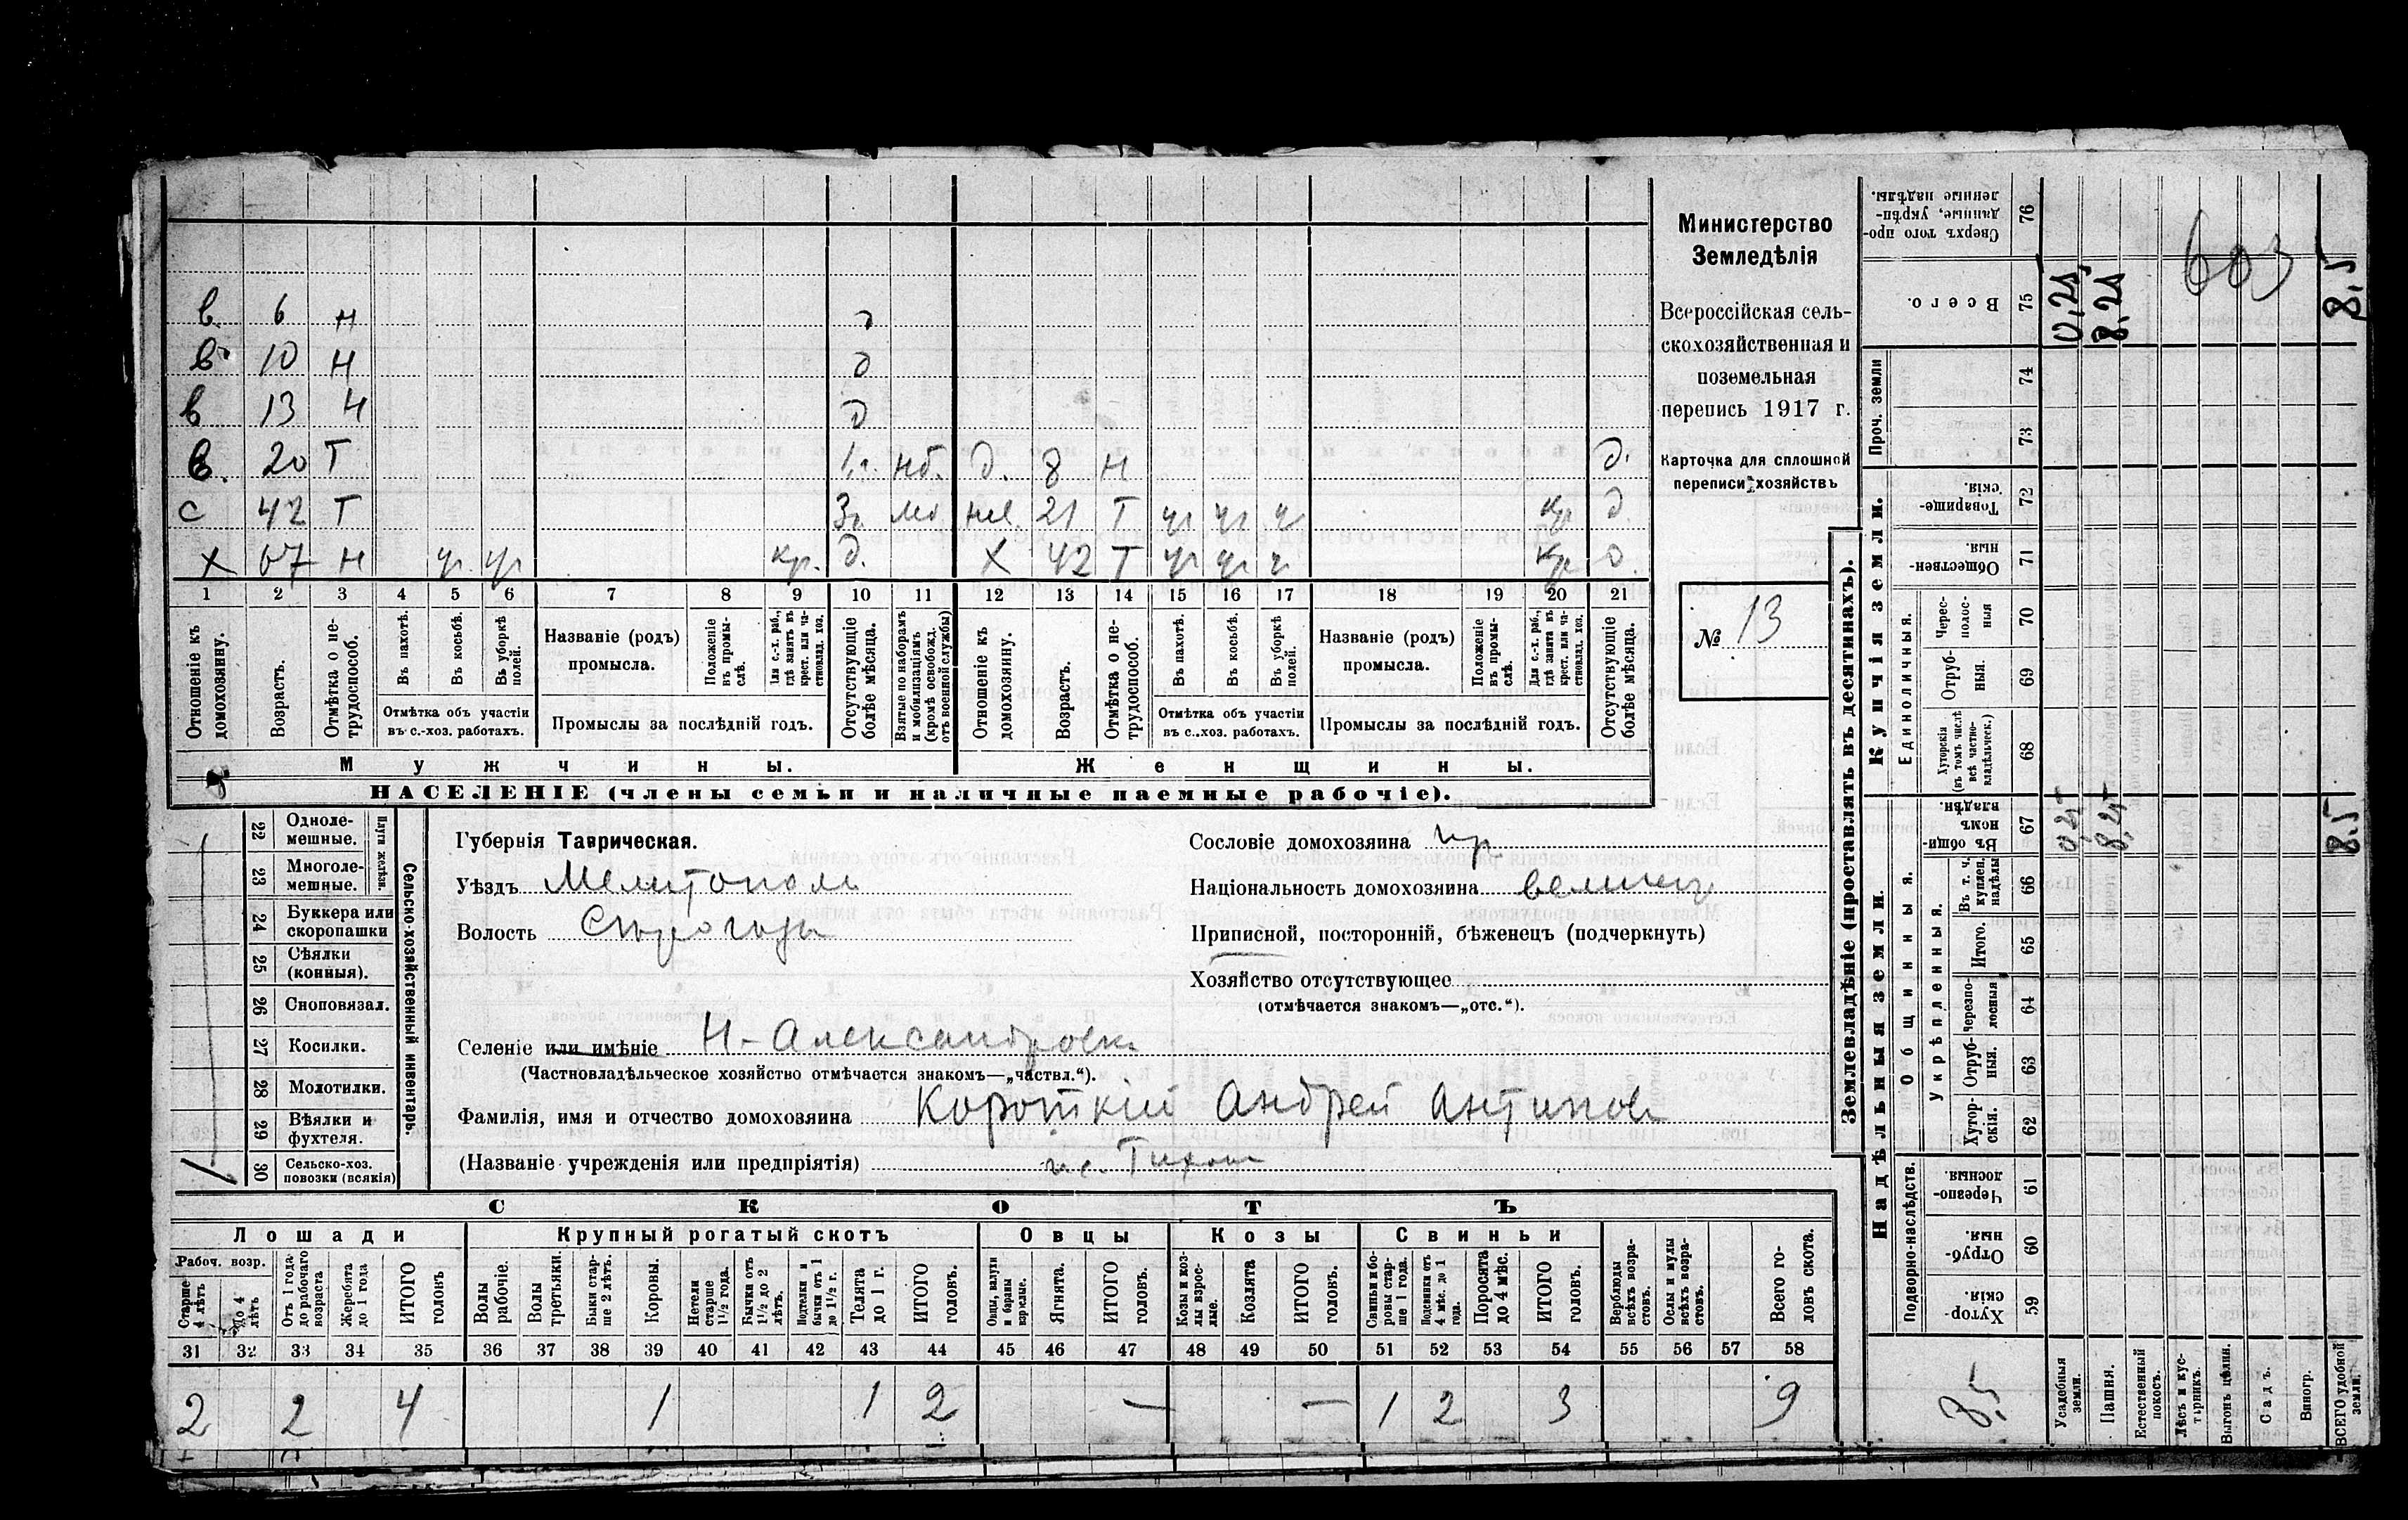 в 6 н д
в 10 н д
в 13 н д
в 20 Т 1 г. нб. д. 8 н д.
с 42 Т 3 г. мо нев. 21 Т уч уч у кр д.
х 67 н уч уч кр. д. х 42 Т уч уч у кр д.
1 2 3 4 5 6 7 8 9 10 11 12 13 14 15 16 17 18 19 20 21
Отношеніе къ домохозяину.
Возрастъ.
Отмѣтка о не-трудоспособ.
Въ пахотѣ.
Въ косьбѣ.
Въ уборкѣ полей.
Отмѣтка объ участіи въ с.-хоз. работахъ.
Названіе (родъ) промысла.
Положеніе въ промы-слѣ.
Для с.-х. раб., гдѣ занятъ въ крест. или ча-стновлад. хоз.
Промыслы за послѣдній годъ.
Отсутствующіе болѣе мѣсяца.
Взятые по наборамъ и мобилизаціямъ (кромѣ освобожд. отъ военной службы)
Отношеніе къ домохозяину.
Возрастъ.
Отмѣтка о не-трудоспособ.
Въ пахотѣ.
Въ косьбѣ.
Въ уборкѣ полей.
Отмѣтка объ участіи въ с.-хоз. работахъ.
Названіе (родъ) промысла.
Положеніе въ промы-слѣ.
Для с.-х. раб., гдѣ занята въ крест. или ча-стновлад. хоз.
Промыслы за послѣдній годъ.
Отсутствующіе болѣе мѣсяца.
Мужчины. Женщины.
НАСЕЛЕНІЕ (члены семьи и наличные наемные рабочіе).
Министерство
Земледѣлія
Всероссійская сель-
скохозяйственная и
поземельная
перепись 1917 г.
Карточка для сплошной
переписи хозяйствъ
№ 13
Сельско-хозяйственный инвентарь.
Плуги желѣзн.
22 Одноле-мешные.
23 Многоле-мешные.
24 Буккера или скоропашки
25 Сѣялки (конныя).
26 Сноповязал.
27 Косилки.
28 Молотилки.
29 Вѣялки и фухтеля.
30 Сельско-хоз. повозки (всякія) 1
Губернія Таврическая.
Уѣздъ Мелитополь
Волость Сирогозы
Сословіе домохозяина кр.
Національность домохозяина великор
Приписной, посторонній, бѣженецъ (подчеркнуть)
Хозяйство отсутствующее
(отмѣчается знакомъ—„отс.“).
Селеніе или имѣніе Н-Александровк
(Частновладѣльческое хозяйство отмѣчается знакомъ—„частвл.“).
Фамилія, имя и отчество домохозяина Короткій Андрей Антипов
(Названіе учрежденія или предпріятія)
СКОТЪ
Лошади Крупный рогатый скотъ Овцы Козы Свиньи
Рабоч. возр.
Старше 4 лѣтъ
До 4 лѣтъ
Отъ 1 года до рабочаго возраста
Жеребята до 1 года
ИТОГО головъ
Волы рабочіе.
Волы третьяки.
Быки стар-ше 2 лѣтъ.
Коровы.
Нетели старше 1½ года.
Бычки отъ 1½ до 2 лѣтъ.
Подтелки и бычки отъ 1 до 1½ г.
Телята до 1 г.
ИТОГО головъ.
Овцы, валухи и бараны взрослые.
Ягнята.
ИТОГО головъ.
Козы и коз-лы взрос-лые.
Козлята
ИТОГО головъ.
Свиньи и бо-ровы стар-ше 1 года.
Подсвинки отъ 4 мѣс. до 1 года.
Поросята до 4 мѣс.
ИТОГО головъ.
Верблюды всѣхъ возра-стовъ.
Ослы и мулы всѣхъ возра-стовъ.
Всего го-ловъ скота.
31 32 33 34 35 36 37 38 39 40 41 42 43 44 45 46 47 48 49 50 51 52 53 54 55 56 57 58
2 2 4 1 1 2 — — 1 2 3 9
Землевладѣніе (проставлять въ десятинахъ).
Надѣльныя земли. Купчія земли. Проч. земли
Подворно-наслѣдств.
Общинныя.
Укрѣпленныя.
Единоличныя.
Хутор-скія. 59
Отруб-ныя. 60
Черезпо-лосныя 61
Хутор-скія. 62
Отруб-ныя. 63
Черезпо-лосныя 64
Итого. 65
Въ т. ч. куплен. надѣлы 66
Въ общин-номъ владѣн. 67
Хуторскія (въ томъ числѣ всѣ частно-владѣльческ.) 68
Отруб-ныя. 69
Черес-полос-ныя 70
Обществен-ныя. 71
Товарище-скія. 72
73
74
Всего. 75
Сверхъ того про-данные, укрѣп-ленные надѣлы. 76
Усадебныя земли. 0,25 0,25
Пашня. 8,25 8,25
Естественный покосъ.
Лѣсъ и кус-тарникъ.
Выгонъ цѣлин.
Садъ.
Виногр.
ВСЕГО удобной земли. 8.5 8,5
603
8,5